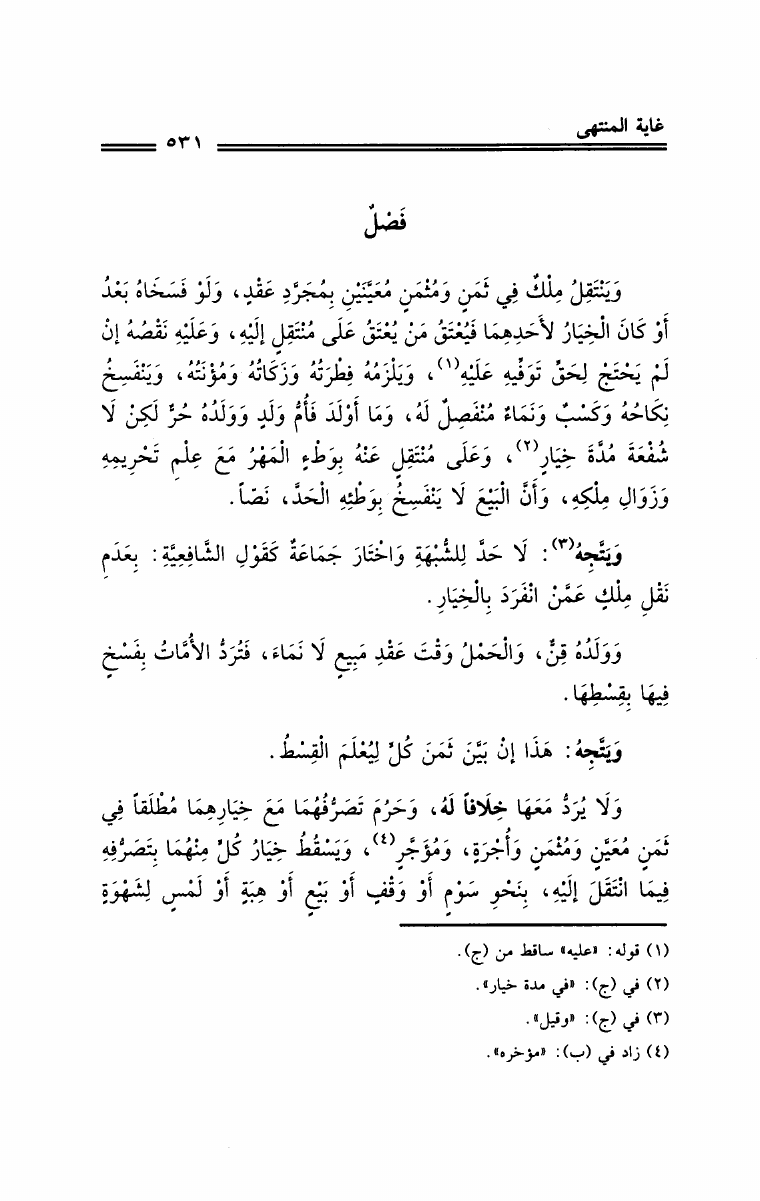 غاية المنتهى
٥٣١
فَصْلٌ
وَيَنْتَقِلُ مِلْكٌ فِي ثَمَنٍ وَمُثْمَنٍ مُعَيَّنَيْنِ بِمُجَرَّدِ عَقْدٍ، وَلَوْ فَسَخَاهُ بَعْدُ
أَوْ كَانَ الْخِيَارُ لأَحَدِهِمَا فَيُعْتَقُ مَنْ يُعْتَقُ عَلَى مُنْتَقِلٍ إِلَيْهِ، وَعَلَيْهِ نَقْصُهُ إنْ
لَمْ يَحْتَجْ لِحَقِّ تَوَفِّيهِ عَلَيْهِ(١)، وَيَلْزَمُهُ فِطْرَتُهُ وَزَكَاتُهُ وَمُؤْنَتُهُ، وَيَنْفَسِخُ
نِكَاحُهُ وَكَسْبٌ وَنَمَاءٌ مُنْفَصِلٌ لَهُ، وَمَا أَوْلَدَ فَأُمُّ وَلَدٍ وَوَلَدُهُ حُرٌّ لَكِنْ لَا
شُفْعَةَ مُدَّةَ خِيَارٍ(٢)، وَعَلَى مُنْتَقِلٍ عَنْهُ بِوَطْءٍ الْمَهْرُ مَعَ عِلْمِ تَحْرِيمِهِ
وَزَوَالِ مِلْكِهِ، وَأَنَّ الْبَيْعَ لَا يَنْفَسِخُ بِوَطْئِهِ الْحَدَّ، نَصّاً.
وَيَتَّجِهُ(٣): لَا حَدَّ لِلشُّبْهَةِ وَاخْتَارَ جَمَاعَةٌ كَقَوْلِ الشَّافِعِيَّةِ: بِعَدَمِ
نَقْلِ مِلْكٍ عَمَّنْ انْفَرَدَ بِالْخِيَارِ.
وَوَلَدُهُ قِنٌّ، وَالْحَمْلُ وَقْتَ عَقْدٍ مَبِيعٍ لَا نَمَاءَ، فَتُرَدُّ الأُمَّاتُ بِفَسْخٍ
فِيهَا بِقِسْطِهَا.
وَيَتَّجِهُ: هَذَا إنْ بَيَّنَ ثَمَنَ كُلٍّ لِيُعْلَمَ الْقِسْطُ.
وَلَا يُرَدُّ مَعَهَا خِلَافاً لَهُ، وَحَرُمَ تَصَرُّفُهُمَا مَعَ خِيَارِهِمَا مُطْلَقاً فِي
ثَمَنٍ مُعَيَّنٍ وَمُثْمَنٍ وَأُجْرَةٍ، وَمُؤَجَّرٍ(٤)، وَيَسْقُطُ خِيَارُ كُلٍّ مِنْهُمَا بِتَصَرُّفِهِ
فِيمَا انْتَقَلَ إِلَيْهِ، بِنَحْوِ سَوْمٍ أَوْ وَقْفٍ أَوْ بَيْعٍ أَوْ هِبَةٍ أَوْ لَمْسٍ لِشَهْوَةٍ
(١) قوله: «عليه» ساقط من (ج).
(٢) في (ج): «في مدة خيار».
(٣) في (ج): «وقيل».
(٤) زاد في (ب): «مؤخره».